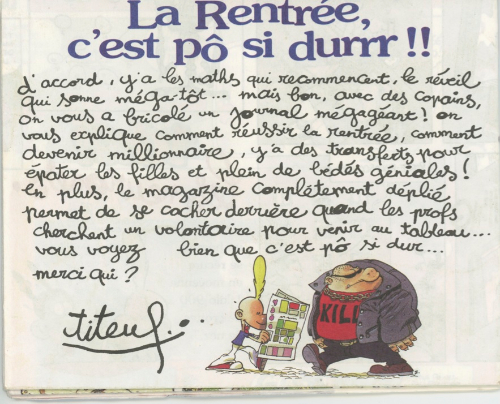 La Rentrée,
c'est pô si durrr !!
d'accord, y'a les maths qui recommencent, le réveil
qui sonne méga-tôt... mais bon, avec des copains,
on vous a bricolé un journal mégagéant ! on
vous explique comment réussir la rentrée, comment
devenir millionnaire, y'a des transferts pour
épater les filles et plein de bédés géniales !
En plus, le magarzine complétement déplié
permet de se cacher derrière quand les profs
cherchent un volontaire pour venir au tableau...
vous voyez bien que c'est pô si dur...
merci qui ?
titeuf...
KILL